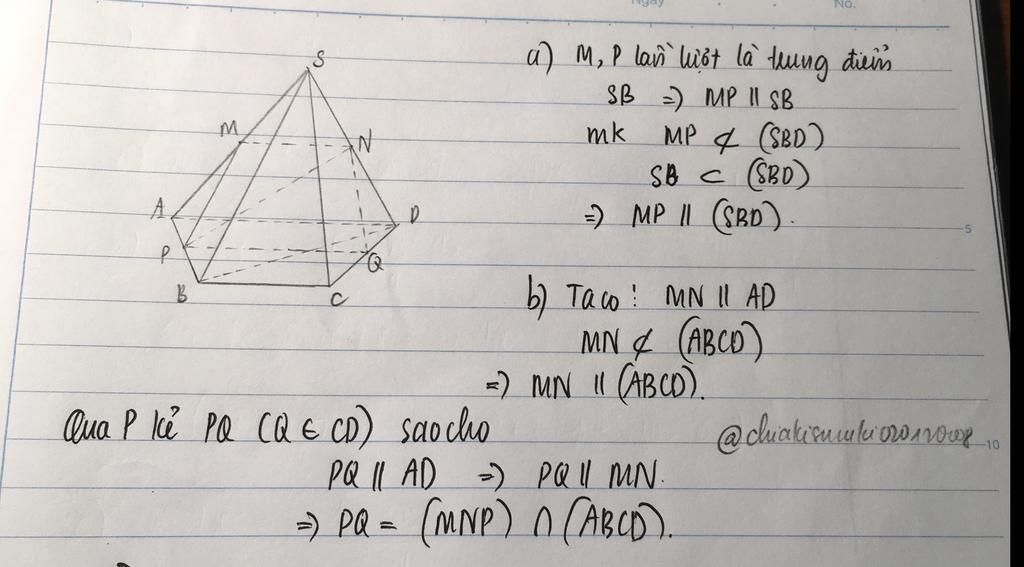 Ngày
No.
S
M
N
A
D
P
Q
B
C
a) M, P lần lượt là trung điểm
SB => MP || SB
mk MP ⊄ (SBD)
SB ⊂ (SBD)
=> MP || (SBD).
5
b) Ta có: MN || AD
MN ⊄ (ABCD)
=> MN || (ABCD).
Qua P kẻ PQ (Q ∈ CD) sao cho
10
PQ || AD => PQ || MN.
=> PQ = (MNP) ∩ (ABCD).